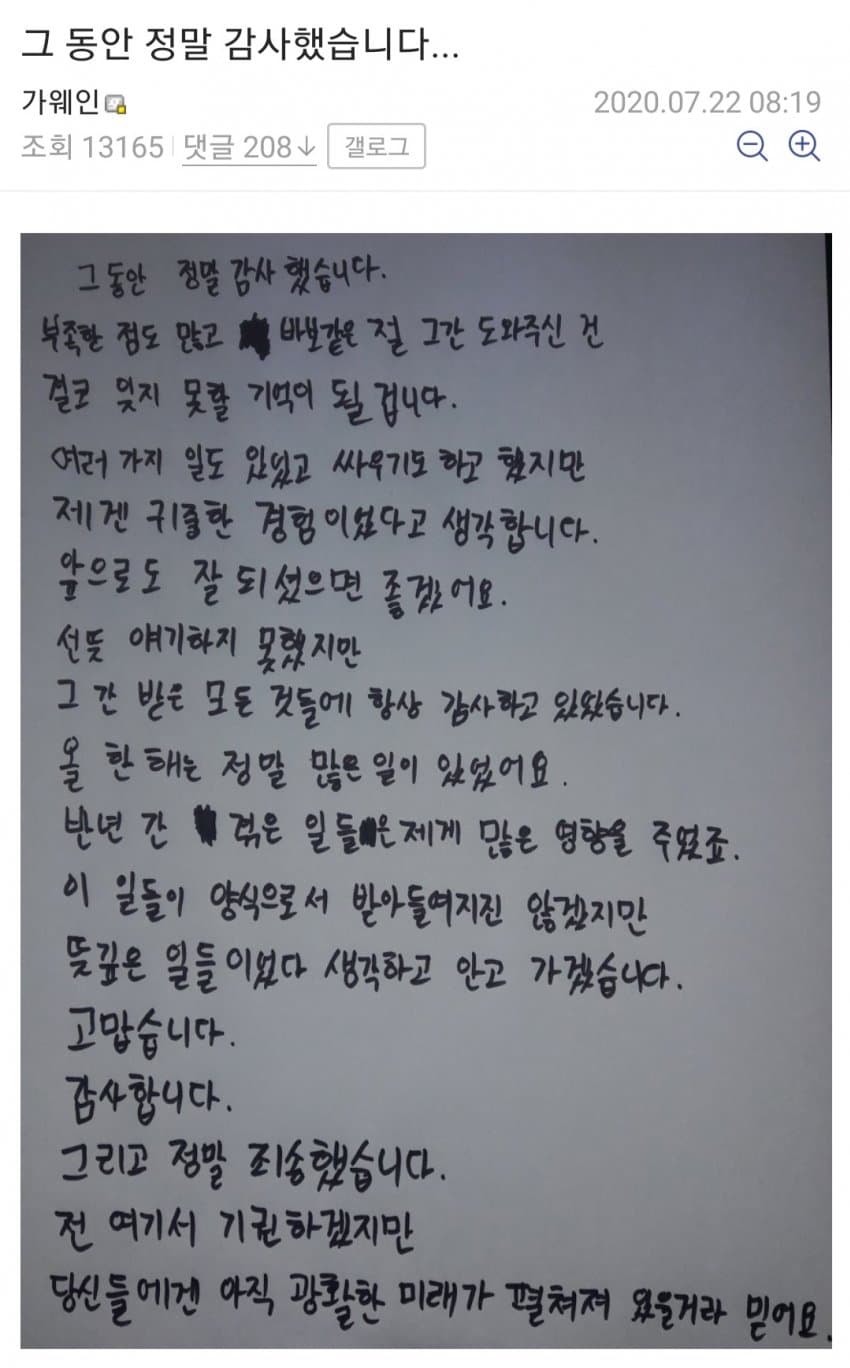 그 동안 정말 감사했습니다...
가웨인
2020.07.22 08:19
조회 13165 댓글 208↓ 갤로그
그동안 정말 감사했습니다.
부족한 점도 많고 바보같은 절 그간 도와주신 건
결코 잊지 못할 기억이 될 겁니다.
여러 가지 일도 있었고 싸우기도 하고 했지만
제겐 귀중한 경험이었다고 생각합니다.
앞으로도 잘 되셨으면 좋겠어요.
선뜻 얘기하지 못했지만
그 간 받은 모든 것들에 항상 감사하고 있었습니다.
올 한 해는 정말 많은 일이 있었어요.
반년 간 겪은 일들은 제게 많은 영향을 주었죠.
이 일들이 양식으로서 받아들여지진 않겠지만
뜻깊은 일들이었다 생각하고 안고 가겠습니다.
고맙습니다.
감사합니다.
그리고 정말 죄송했습니다.
전 여기서 기권하겠지만
당신들에겐 아직 광활한 미래가 펼쳐져 있을거라 믿어요.